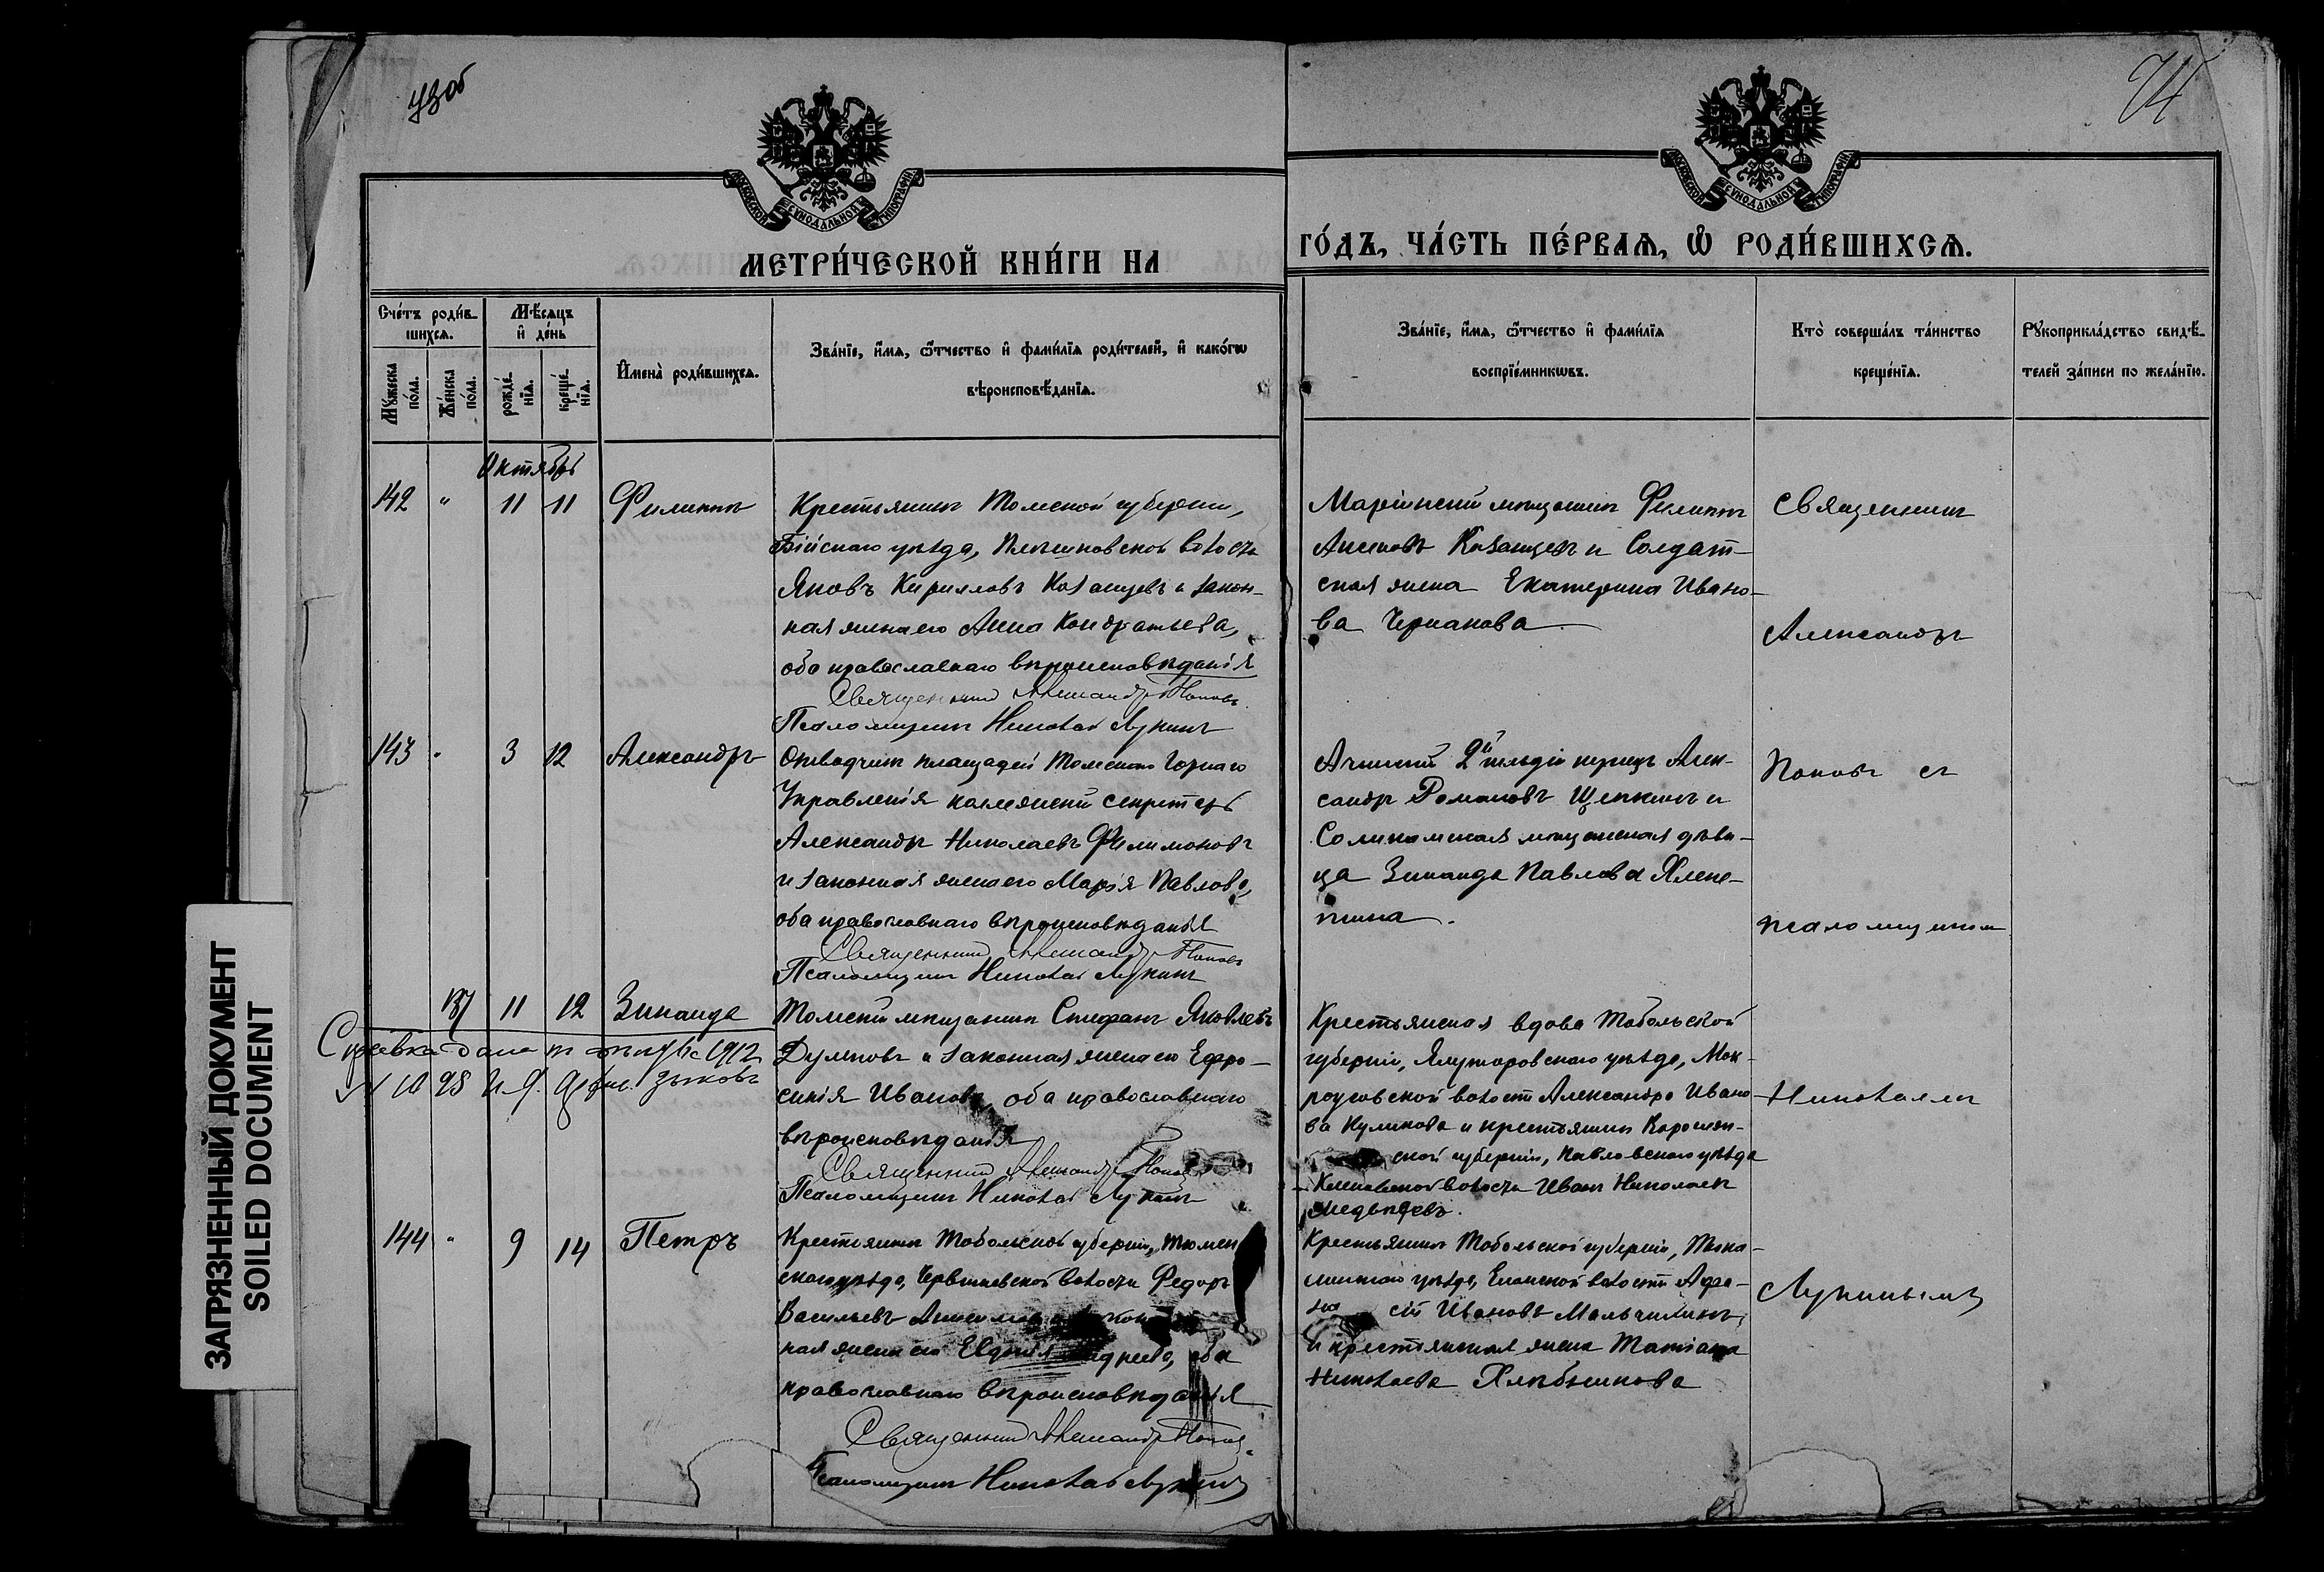 73об
74
МОСКОВСКОЙ СѴНОДАЛЬНОЙ ТИПОГРАФІИ
МОСКОВСКОЙ СѴНОДАЛЬНОЙ ТИПОГРАФІИ
МЕТРИ́ЧЕСКОЙ КНИ́ГИ НА
ГО́ДЪ, ЧА́СТЬ ПЕ́РВАѦ, Ѡ҆ РОДИ́ВШИХСѦ.
Сче́тъ роди́в-
шихсѧ.
Мꙋ́жеска
по́ла.
Же́нска
по́ла.
Мѣ́сѧцъ
и҆ де́нь
рожде́-
нїѧ.
креще́-
нїѧ.
И҆мена̀ роди́вшихсѧ.
Зва́нїе, и҆́мѧ, ѻ҆́тчество и҆ фами́лїѧ роди́телей, и҆ како́гѡ
вѣроисповѣ́данїѧ.
Зва́нїе, и҆́мѧ, ѻ҆́тчество и҆ фами́лїѧ
воспрїе́мникѡвъ.
Кто̀ соверша́лъ та́инство
креще́нїѧ.
Рꙋкоприкла́дство свидѣ́-
телей за́писи по жела́нїю.
Октябрь
142 " 11 11 Филиппъ
Крестьянинъ Томской губерніи,
Бійскаго уѣзда, волости
Яковъ Кирилловъ Казанцевъ и закон-
ная жена его Анна Кондратьева,
оба православнаго вѣроисповѣданія
Священникъ Александръ Поповъ
Псаломщикъ Николай Лукинъ
Маріинскій мѣщанинъ Филиппъ
Казанцевъ и Солдат-
ская жена Екатерина Ивано-
ва
Священникъ
Александръ
143 " 3 12 Александръ
Отводчикъ площадей Томскаго Горнаго
Управленія коллежскій секретарь
Александръ Николаевъ Филимоновъ
и законная жена его Марія Павлова,
оба православнаго вѣроисповѣданія
Священникъ Александръ Поповъ
Псаломщикъ Николай Лукинъ
Ачинскій 2й гильдіи купецъ Алек-
сандръ Романовъ Щепкинъ и
мѣщанская дѣви-
ца Зинаида Павлова
Поповъ съ
псаломщикомъ
137 11 12 Зинаида
Томскій мѣщанинъ Стефанъ Яковлевъ
и законная жена его Ефро-
синія Иванова, оба православнаго
вѣроисповѣданія
Священникъ Александръ Поповъ
Псаломщикъ Николай Лукинъ
Справка дана 1912
Крестьянская вдова Тобольской
губерніи, Ялуторовскаго уѣзда, Мок-
роусовской волости Александра Ивано-
ва Куликова и крестьянинъ Воронеж-
ской губерніи, Павловскаго уѣзда
волости Иванъ Николаевъ
Медвѣдевъ.
Николаемъ
144 " 9 14 Петръ
Крестьянинъ Тобольской губерніи, Тюмен
скаго уѣзда, Червишевской волости Федоръ
Васильевъ
ная жена его Евдокія оба
православнаго вѣроисповѣданія
Священникъ Александръ Поповъ
Псаломщикъ Николай Лукинъ
Крестьянинъ Тобольской губерніи, Тюка-
линскаго уѣзда, Еланской волости Афа-
сій Ивановъ
и крестьянская жена Татіана
Николаева Хлѣбникова
Лукинымъ
ЗАГРЯЗНЕННЫЙ ДОКУМЕНТ
SOILED DOCUMENT